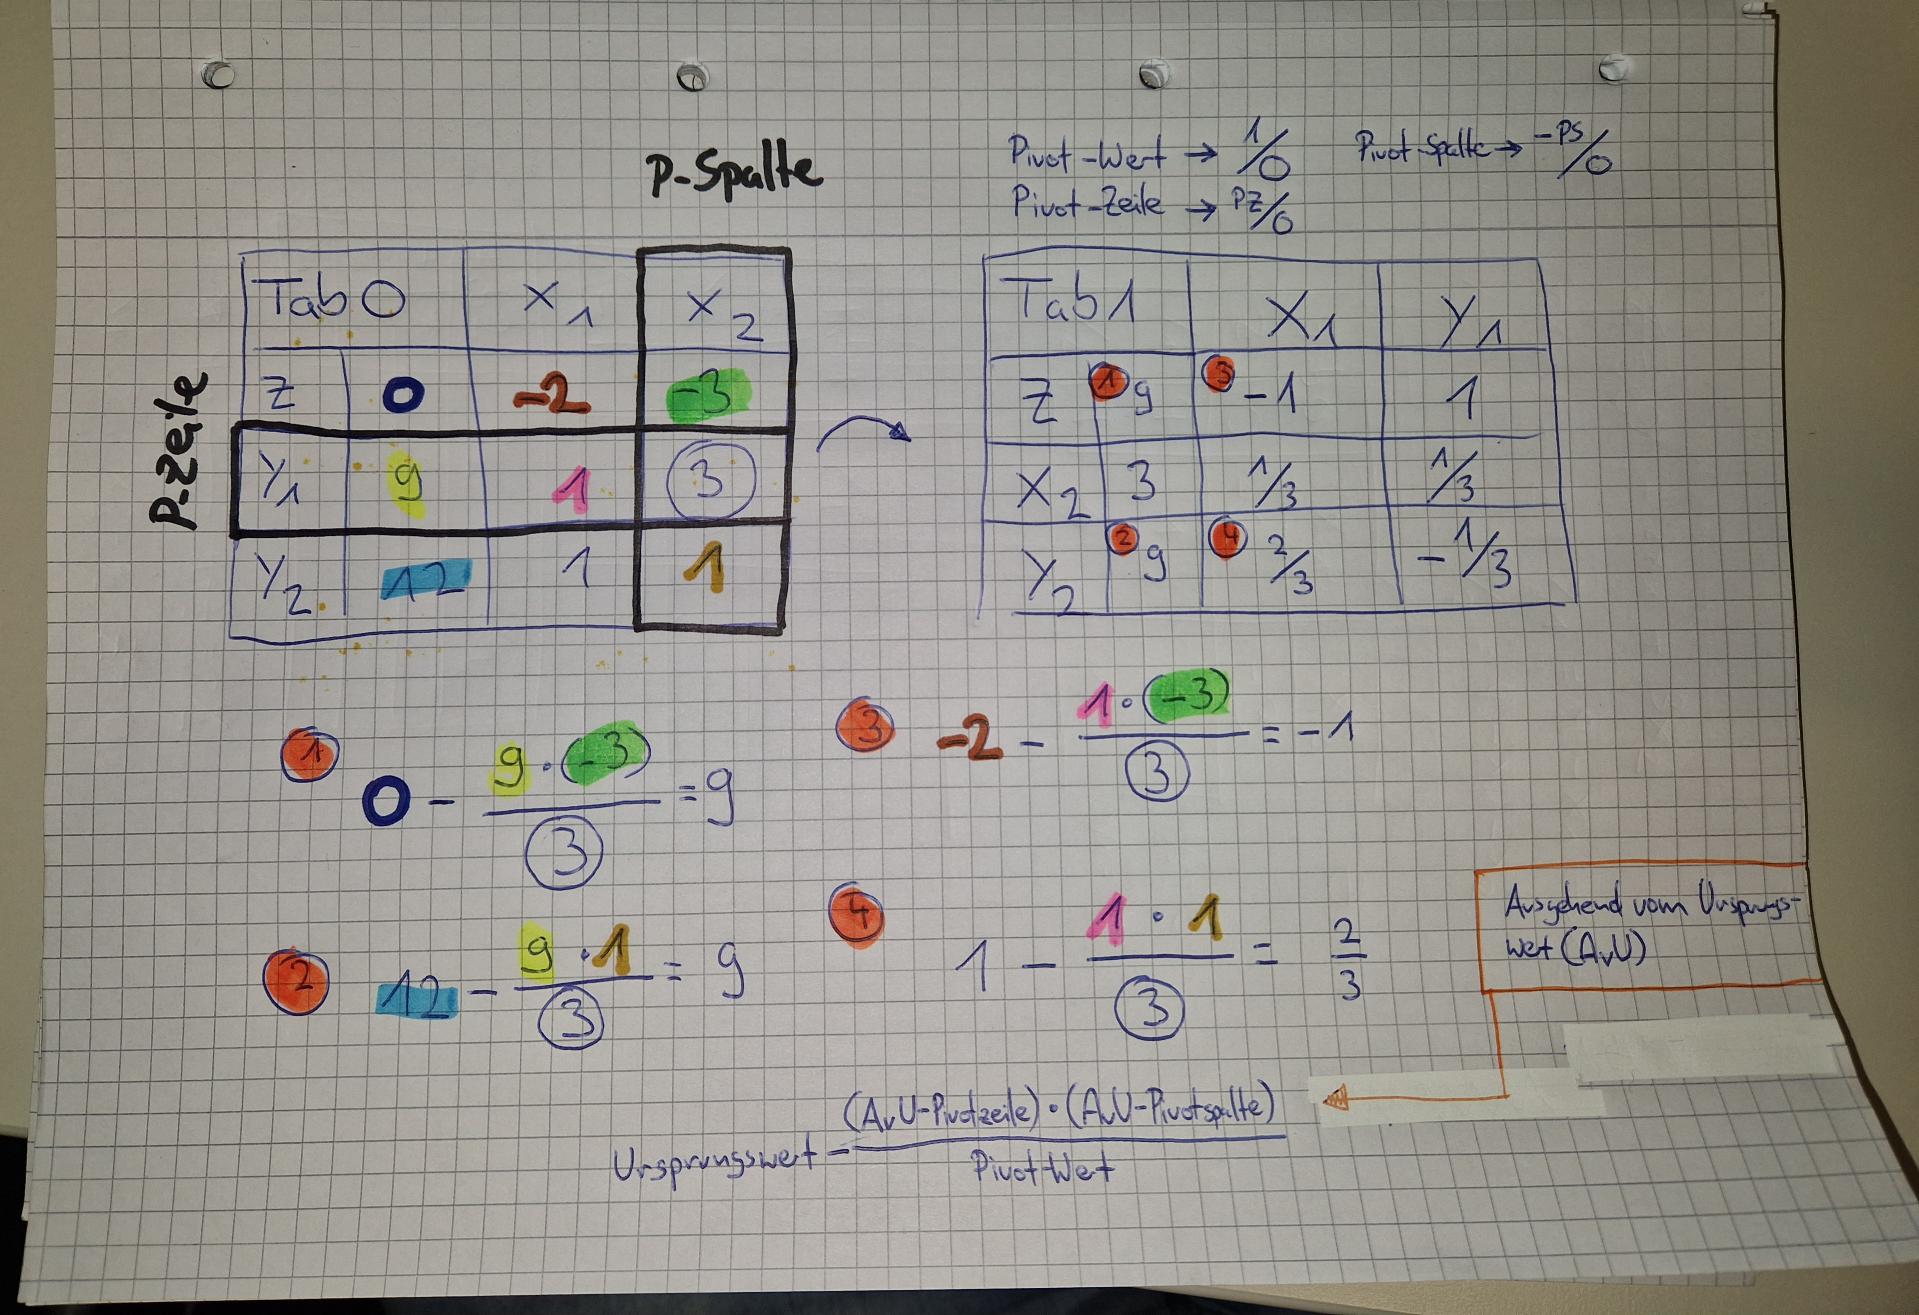 P-Spalte
Pivot-Wert → 1/O Pivot-Spalte → -PS/O
Pivot-Zeile → PZ/O
P-Zeile
Tab 0 X1 X2
Z 0 -2 -3
Y1 9 1 3
Y2 12 1 1
Tab 1 X1 Y1
Z 1 9 3 -1 1
X2 3 1/3 1/3
Y2 2 9 4 2/3 -1/3
1 0 - 9 · (-3) / 3 = 9
3 -2 - 1 · (-3) / 3 = -1
2 12 - 9 · 1 / 3 = 9
4 1 - 1 · 1 / 3 = 2/3
Ausgehend vom Ursprungs-
wert (AvU)
Ursprungswert - (AvU-Pivotzeile) · (AvU-Pivotspalte) / Pivot-Wert